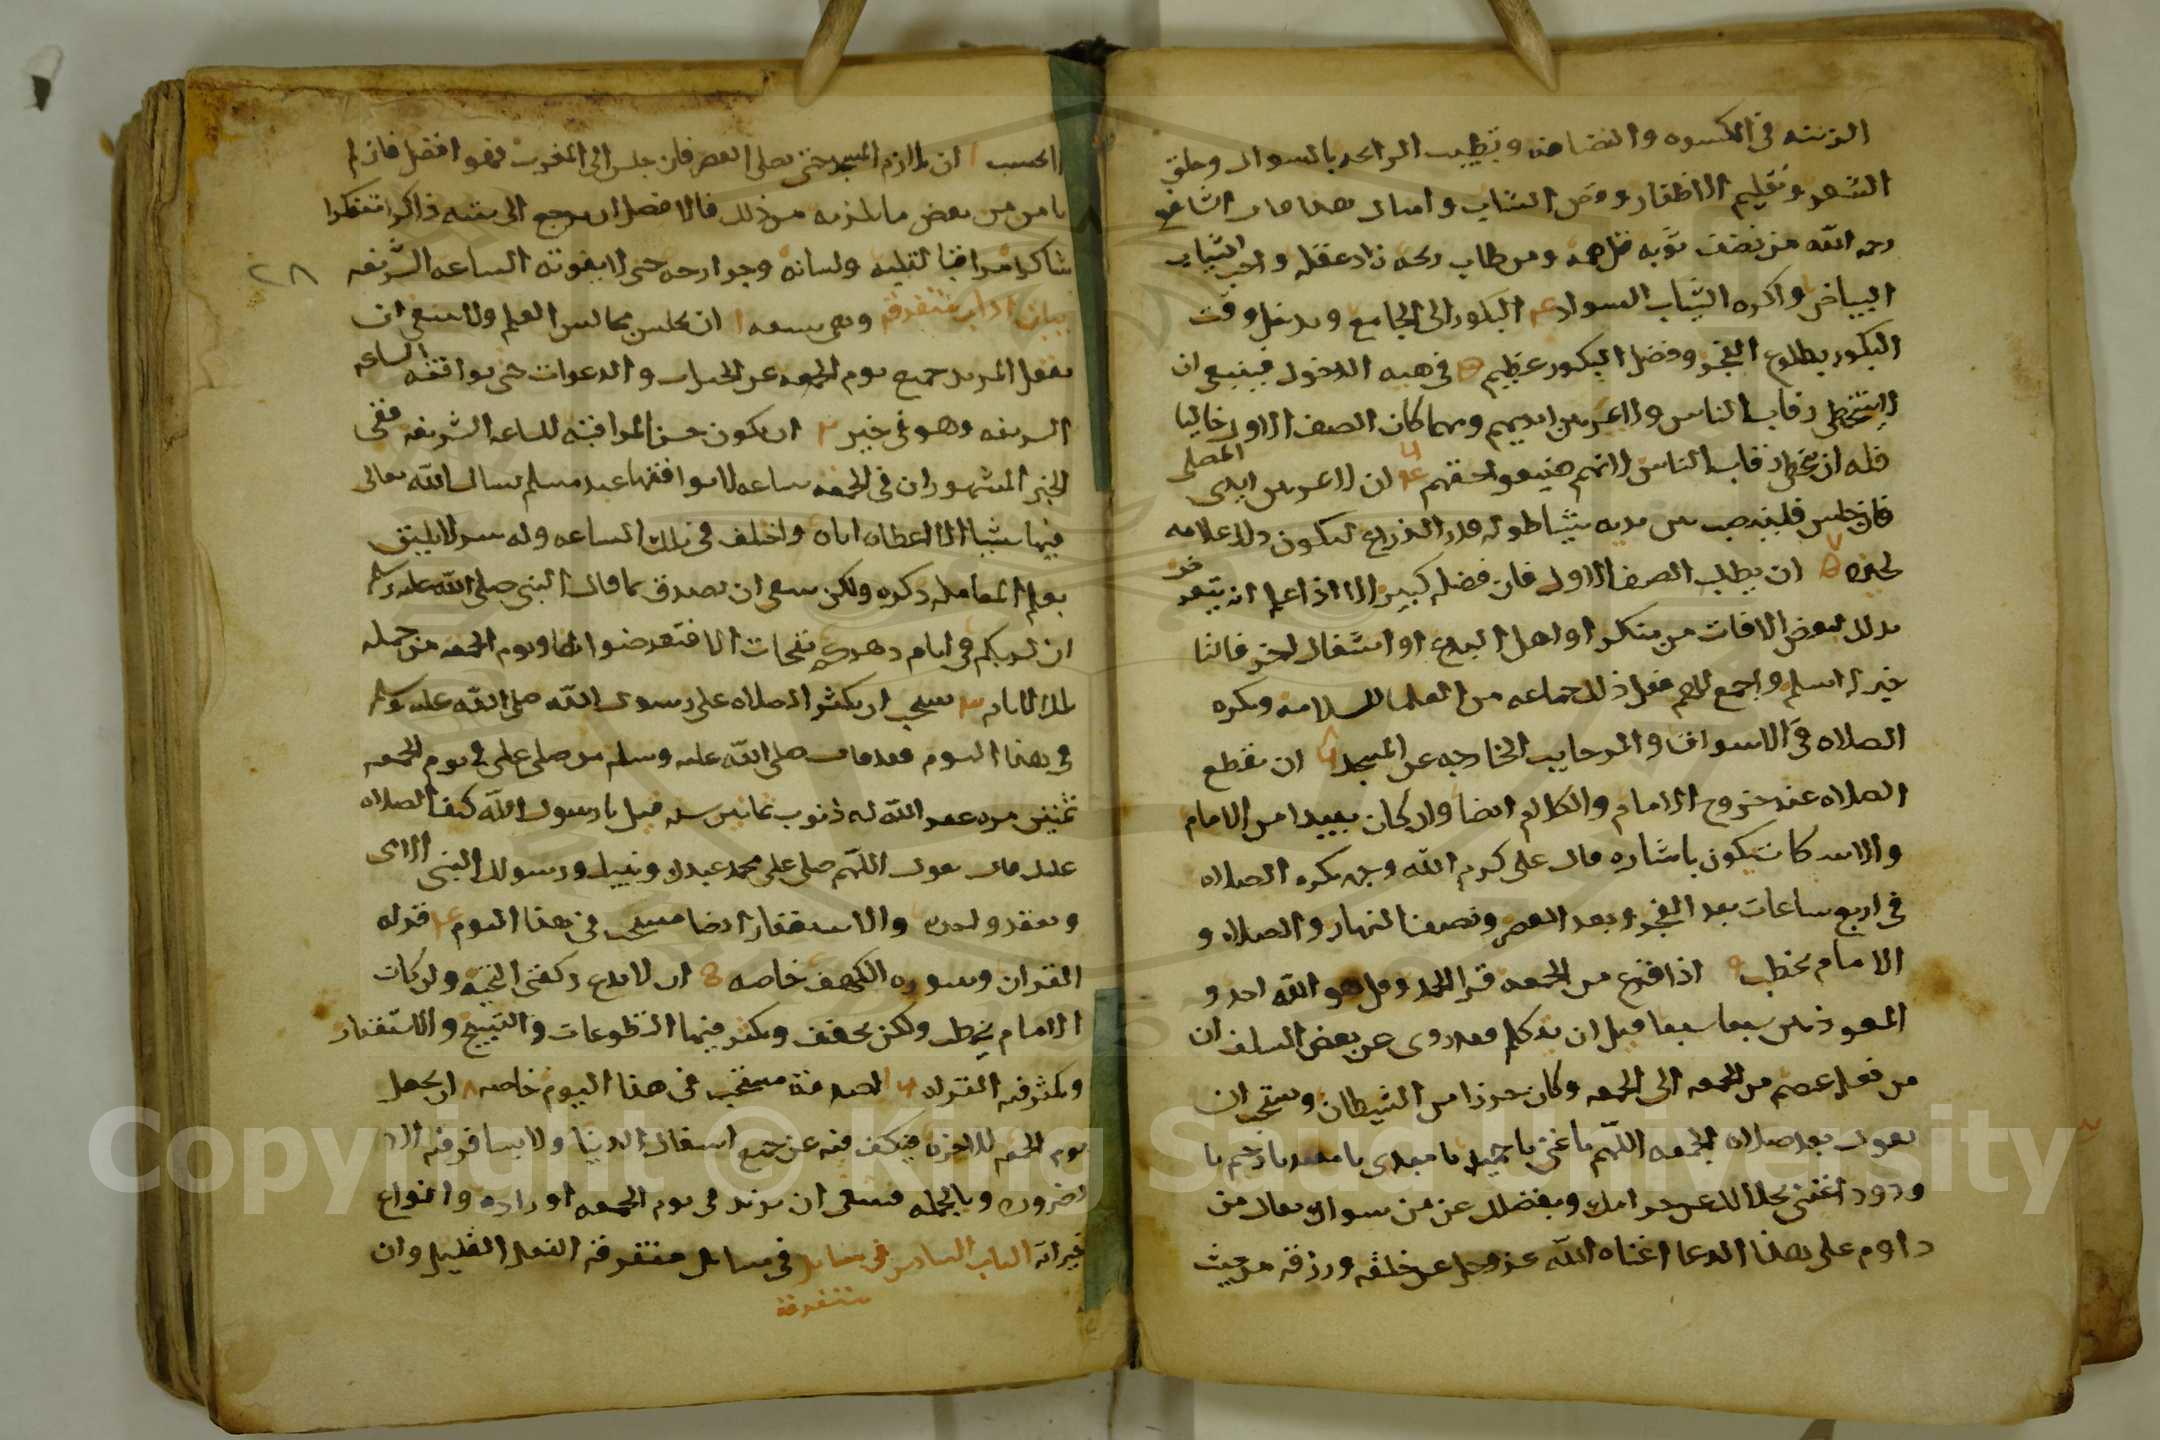 الزينه في الكسوه والنضافه وتطييب الرائحه بالسواك وحلق
الشعر وتقليم الاظفار وقص الشارب وامثال هذا قال الشافعي
رحمه الله من نضف ثوبه قل همه ومن طاب ريحه زاد عقله واحب الثياب
البياض واكره الثياب السواد البكور الى الجامع ويدخل وقت
البكور بطلوع الفجر وفضل البكور عظيم في هيه الدخول فينبغي ان
لا يتخطى رقاب الناس ولا يمر بين ايديهم ومهما كان الصف الاول خاليا
فله ان يتخطى رقاب الناس لانهم ضيعوا حقهم ان لا يمر بين ايدى المصلى
فان جلس فلينصب بين يديه شيئا طوله قدر الذراع ليكون ذلك علامه
لحيزه ان يطلب الصف الاول فان فضله كبير الا اذا علم
ذلك لبعض الافات من منكر او اهل البدع او اشغال اخر فالتاخر
خير له اسلم واجمع للهم فعل ذلك جماعه من العلما للسلامه ويكره
الصلاه في الاسواق والرحايب الخارجه عن المسجد ان يقطع
الصلاه عند خروج الامام والكلام ايضا وان كان بعيدا من الامام
يكون باشاره قال على كرم الله وجهه يكره الصلاه
في اربع ساعات بعد الفجر وبعد العصر ونصف النهار والصلاه و
الامام يخطب اذا فرغ من الجمعه قرا الحمد وقل هو الله احد و
المعوذتين سبعا سبعا قبل ان يتكلم فقد روى عن بعض السلف ان
من فعل عصم من الجمعه الى الجمعه وكان حرزا من الشيطان ويستحب ان
يقول بعد صلاه الجمعه اللهم يا غني يا حميد يا مبدى يا معيد يا رحيم يا
ودود اغنني بحلالك عن حرامك وبفضلك عن من سواك يقال من
داوم على هذا الدعا اغناه الله عز وجل عن خلقه ورزقه من حيث
لا يحتسب ان يلازم المسجد حتى يصلى العصر فان جلس الى المغرب فهو افضل فان لم
يامن من بعض ما يلزمه من ذلك فالافضل ان يرجع الى بيته ذاكرا متفكرا
شاكرا مراقبا لقلبه ولسانه وجوارحه حتى لا يفوته الساعه الشريفه
٢٨
بيان اداب متفرقه وهي سبعه ان يجلس مجالس العلم ولا ينبغي ان
يغفل المريد جميع يوم الجمعه عن الخيرات والدعوات حتى يوافقه الساعه
الشريفه وهو في خير ان يكون حسن المراقبه للساعه الشريفه ففى
الخبر المشهور ان في الجمعه ساعه لا يوافقها عبد مسلم يسال الله تعالى
فيها شيئا الا اعطاه اياه واختلف في تلك الساعه وله سر لا يليق
بعلم المعامله ذكره ولكن ينبغي ان يصدق بما قال النبي صلى الله عليه وسلم
ان لربكم في ايام دهركم نفحات الا فتعرضوا لها ويوم الجمعه من جمله
تلك الايام يستحب ان يكثر الصلاه على رسول الله صلى الله عليه وسلم
في هذا اليوم فقد قال صلى الله عليه وسلم من صلى على في يوم الجمعه
ثمنين مره غفر الله له ذنوب ثمانين سنه قيل يا رسول الله كيف الصلاه
عليك قال يقول اللهم صلى على محمد عبدك ونبيك ورسولك النبي الامى
ويعقد واحده والاستغفار ايضا مستحب في هذا اليوم قراه
القران وسوره الكهف خاصه ان لا يدع ركعتى التحيه ولو كان
الامام يخطب ولكن يخفف ويكثر فيها التطوعات والتسبيح والاستغفار
ويكثر فيه القراه الصدقه مستحبه في هذا اليوم خاصه ان يجعل
يوم الجمعه للاخره فيكف فيه عن جميع اشغال الدنيا ولا يسافر فيه الا
لضروره وبالجمله فينبغى ان يزيد في يوم الجمعه اوراده وانواع
خيراته الباب السادس في مسايل في مسايل متفرقه الفعل القليل وان
متفرقه